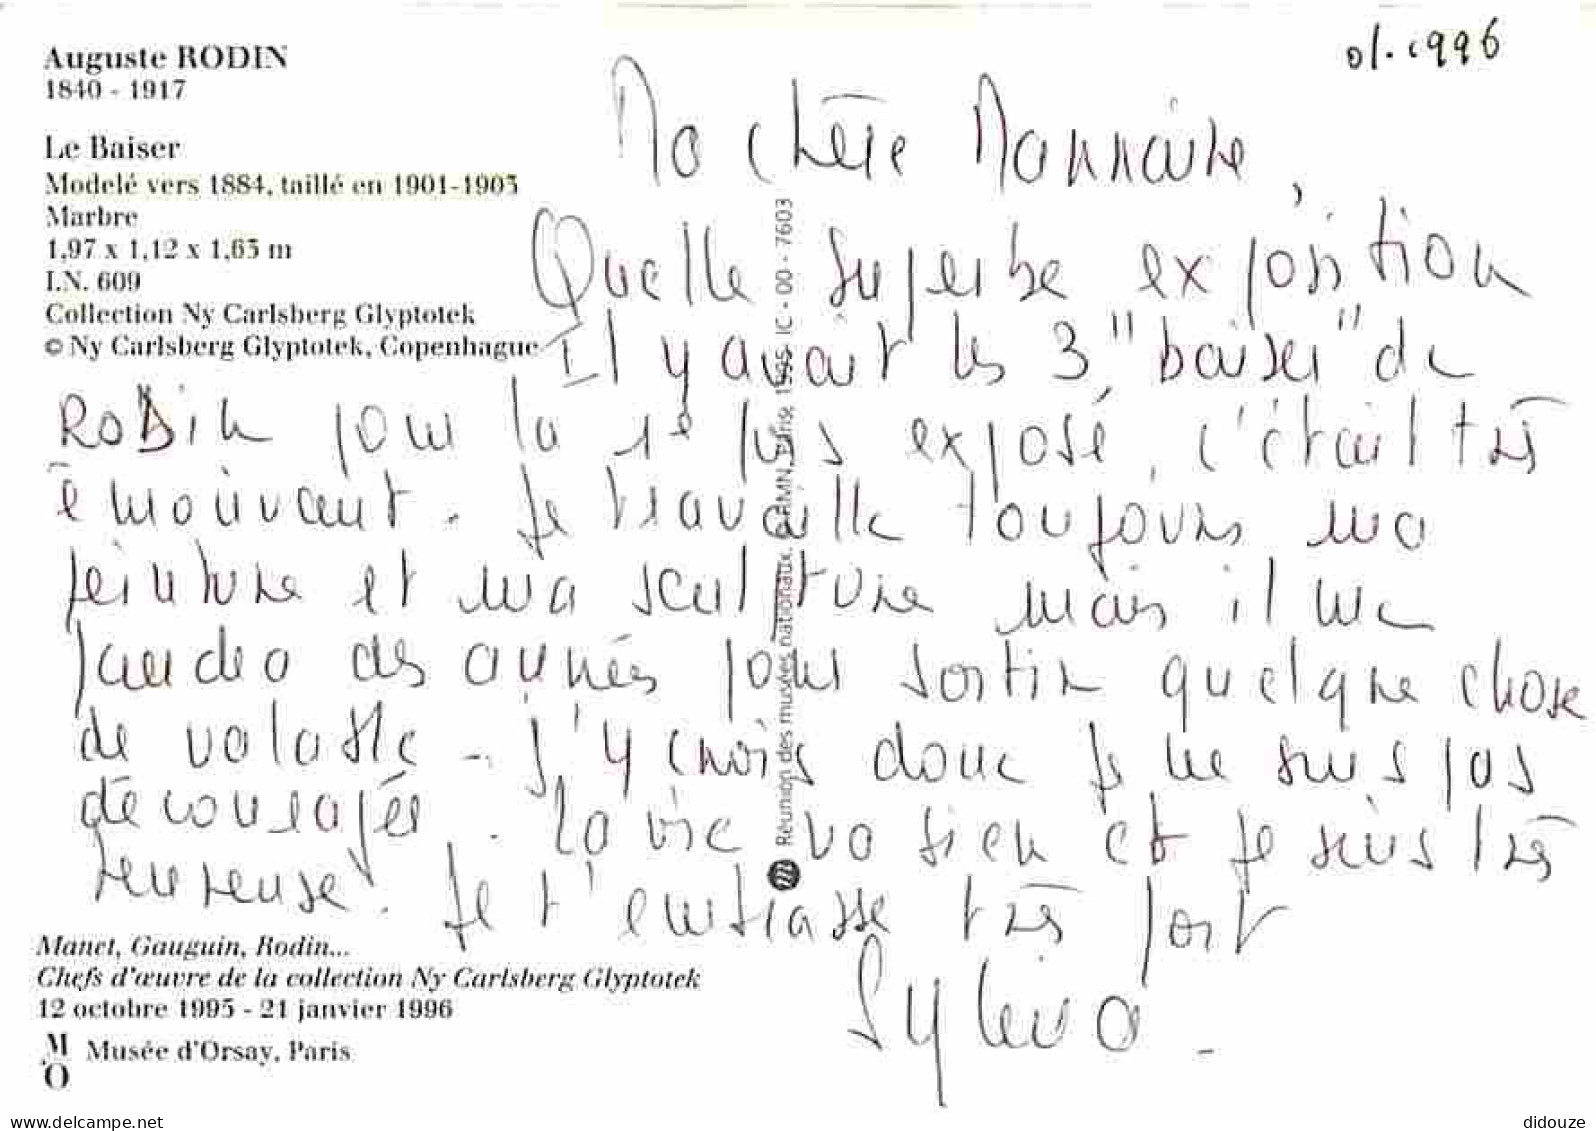 Auguste RODIN
1840 - 1917
Le Baiser
Modelé vers 1884, taillé en 1901-1903
Marbre
1,97 x 1,12 x 1,63 m
I.N. 609
Collection Ny Carlsberg Glyptotek
© Ny Carlsberg Glyptotek, Copenhague
01.1996
Ma chère Mannaïse,
Quelle superbe exposition
Il y avait les 3 "baiser" de
RoDin pour la 1e fois exposé, c'était très
émouvant. Je travaille toujours ma
peinture et ma sculpture mais il me
faudra des années pour sortir quelque chose
de valable - J'y crois donc je ne suis pas
découragée. La vie va bien et je suis très
heureuse. Je t'embrasse très fort
Sylvia.
Réunion des musées nationaux. © RMN, Paris. 1995 IC - 00 - 7603
Manet, Gauguin, Rodin...
Chefs d'œuvre de la collection Ny Carlsberg Glyptotek
12 octobre 1995 - 21 janvier 1996
M'O
Musée d'Orsay, Paris
www.delcampe.net
didouze